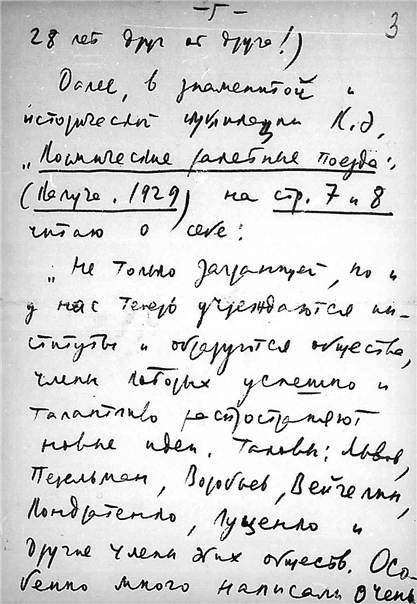 -5-
3
28 лет друг от друга!)
Далее, в знаменитой и
исторической публикации К.Э.
„Космические ракетные поезда"
(Калуга. 1929) на стр. 7 и 8
читаю о себе:
„Не только заграницей, но и
у нас теперь учреждаются ин-
ституты и образуются общества,
члены которых успешно и
талантливо распространяют
новые идеи. Таковы:
Перельман, Воробьев, Вейгелин,
Кондратенко, Луценко и
другие члены этих обществ. Осо-
бенно много написали очень